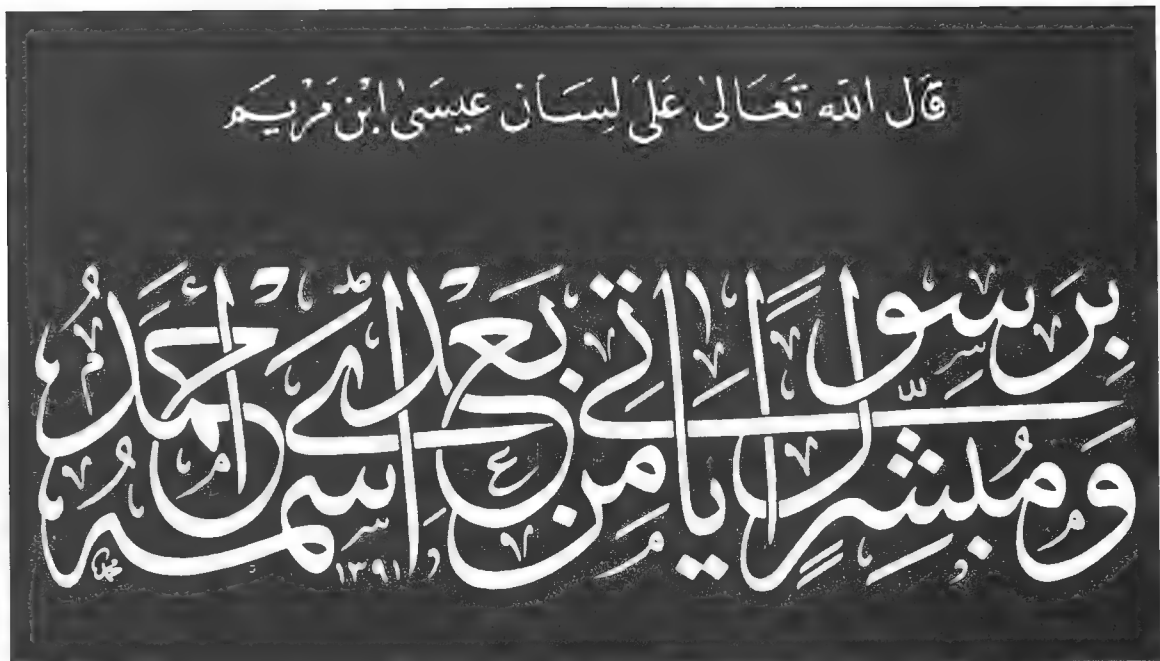 قَال الله تَعَالىٰ عَلىٰ لِسَان عيسَىٰ ابْن مَرْيَم
وَمُبَشِّرًا بِرَسُولٍ يَاتي مِنْ بَعْدي اسْمُهُ أَحْمَدُ
١٣٩١